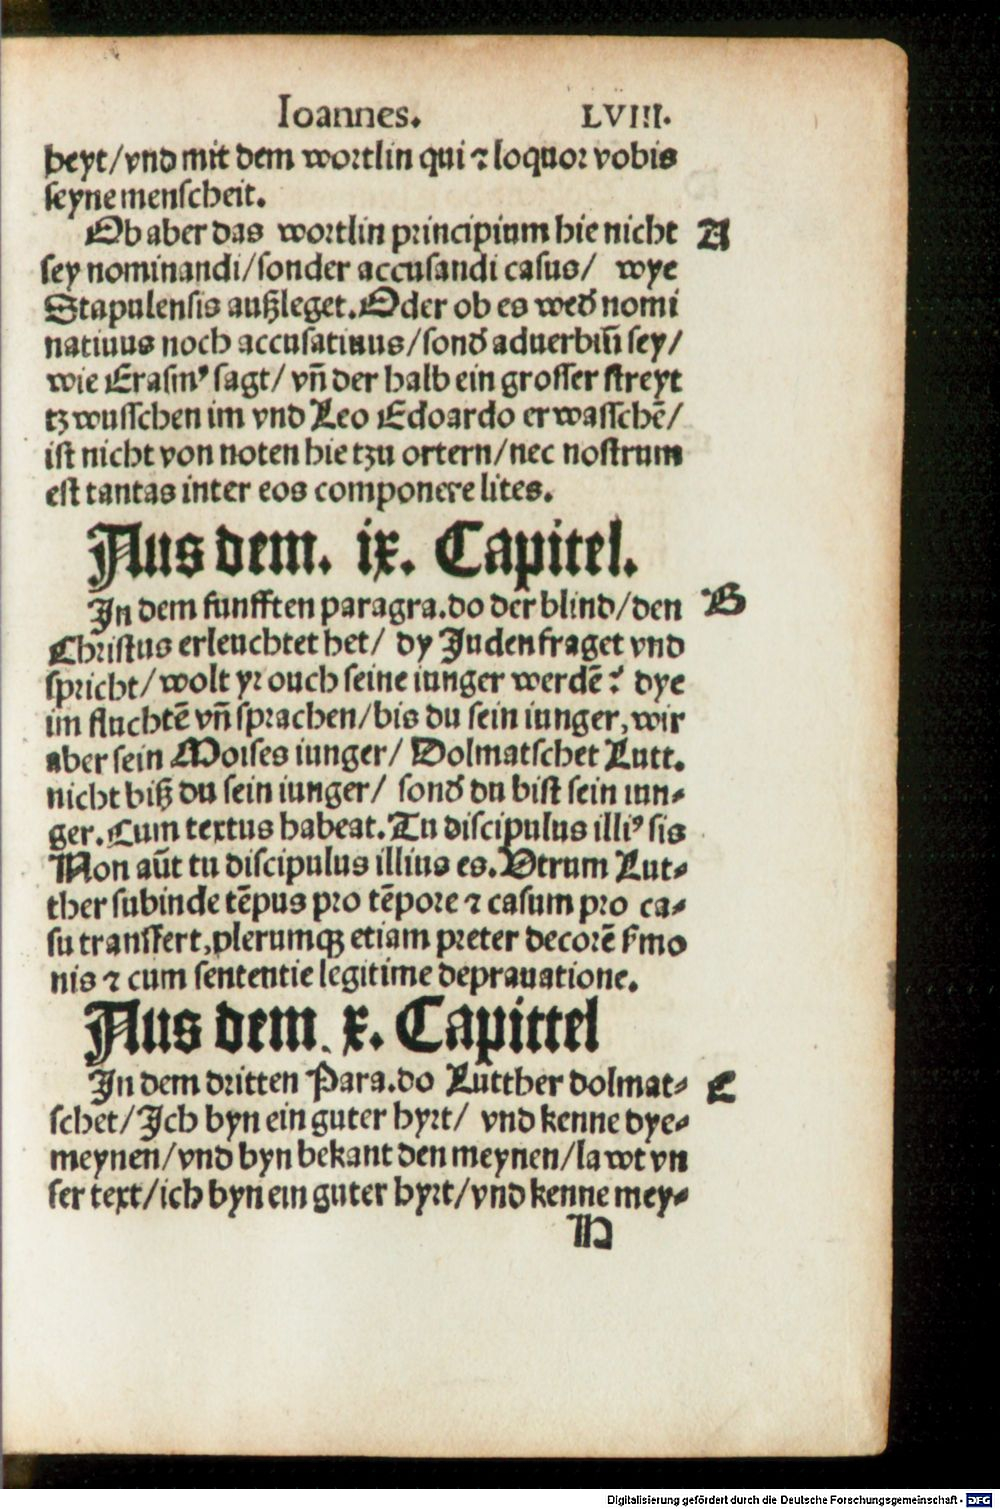 Ioannes. LVIII.
heyt/vnd mit dem wortlin qui ⁊ loquor vobis
seyne menscheit.
Ob aber das wortlin principium hie nicht A
sey nominandi/sonder accusandi casus/ wye
Stapulensis außleget. Oder ob es wed̕ nomi
natiuus noch accusatiuus/sond̕ aduerbiū sey/
wie Erasmꝰ sagt/ vñ der halb ein grosser streyt
tzwusschen im vnd Leo Edoardo erwasschē/
ist nicht von noten hie tzu ortern/nec nostrum
est tantas inter eos componere lites.
Aus dem. ix. Capitel.
In dem funfften paragra.do der blind/den B
Christus erleuchtet het/ dy Juden fraget vnd
spricht/wolt yr ouch seine iunger werdē? dye
im fluchtē vñ sprachen/bis du sein iunger, wir
aber sein Moises iunger/ Dolmatschet Lutt.
nicht biß du sein iunger/ sond̕ du bist sein iun⸗
ger. Cum textus habeat. Tu discipulus illiꝰ sis
Non aūt tu discipulus illius es. Vtrum Lut⸗
ther subinde tēpus pro tēpore ⁊ casum pro ca⸗
su transfert, plerumqꝫ etiam preter decorē s̕mo
nis ⁊ cum sententie legitime deprauatione.
Aus dem. x. Capittel
In dem dritten Para.do Lutther dolmat⸗ C
schet/Ich byn ein guter hyrt/ vnd kenne dye⸗
meynen/vnd byn bekant den meynen/lawt vn
ser text/ich byn ein guter hyrt/vnd kenne mey⸗
H
Digitalisierung gefördert durch die Deutsche Forschungsgemeinschaft - DFG